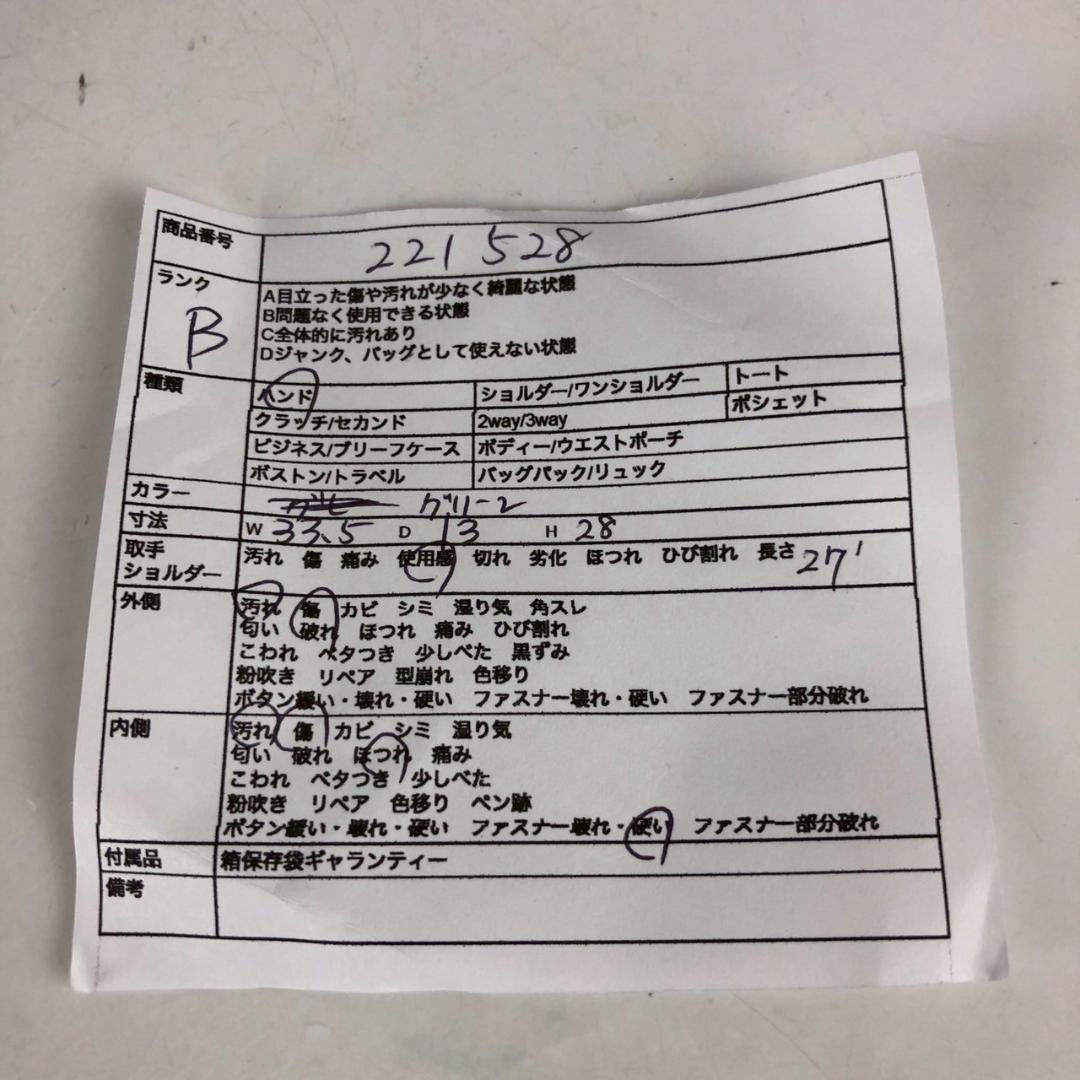 商品番号 221528
ランク B
A目立った傷や汚れが少なく綺麗な状態
B問題なく使用できる状態
C全体的に汚れあり
Dジャンク、バッグとして使えない状態
種類 ハンド ショルダー/ワンショルダー トート
クラッチ/セカンド 2way/3way ポシェット
ビジネス/ブリーフケース ボディー/ウエストポーチ
ボストン/トラベル バッグパック/リュック
カラー グリーン
寸法 W 33.5 D 13 H 28
取手 汚れ 傷 痛み 使用感 切れ 劣化 ほつれ ひび割れ 長さ 27
ショルダー
外側 汚れ 傷 カビ シミ 湿り気 角スレ
匂い 破れ ほつれ 痛み ひび割れ
こわれ ベタつき 少しべた 黒ずみ
粉吹き リペア 型崩れ 色移り
ボタン緩い・壊れ・硬い ファスナー壊れ・硬い ファスナー部分破れ
内側 汚れ 傷 カビ シミ 湿り気
匂い 破れ ほつれ 痛み
こわれ ベタつき 少しべた
粉吹き リペア 色移り ペン跡
ボタン緩い・壊れ・硬い ファスナー壊れ・硬い ファスナー部分破れ
付属品 箱保存袋ギャランティー
備考